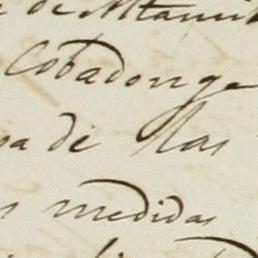 de Altami
Cobadonga
sa de las
s medidas